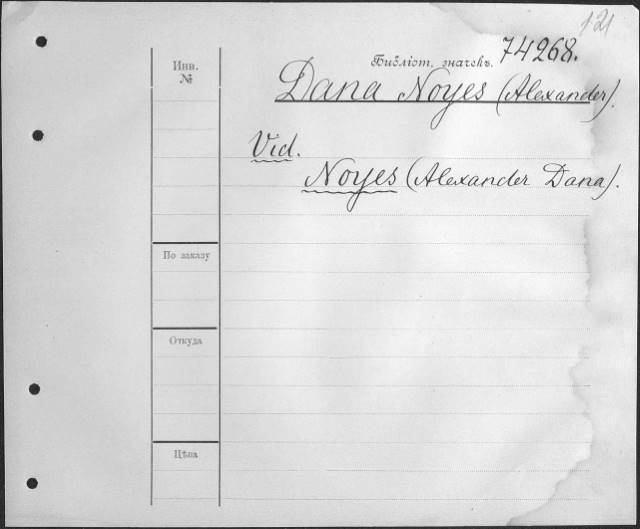 121
Библіот. значекъ. 74268.
Инв.
№
Dana Noyes (Alexander).
Vid.
Noyes (Alexander Dana).
По заказу
Откуда
Цѣна